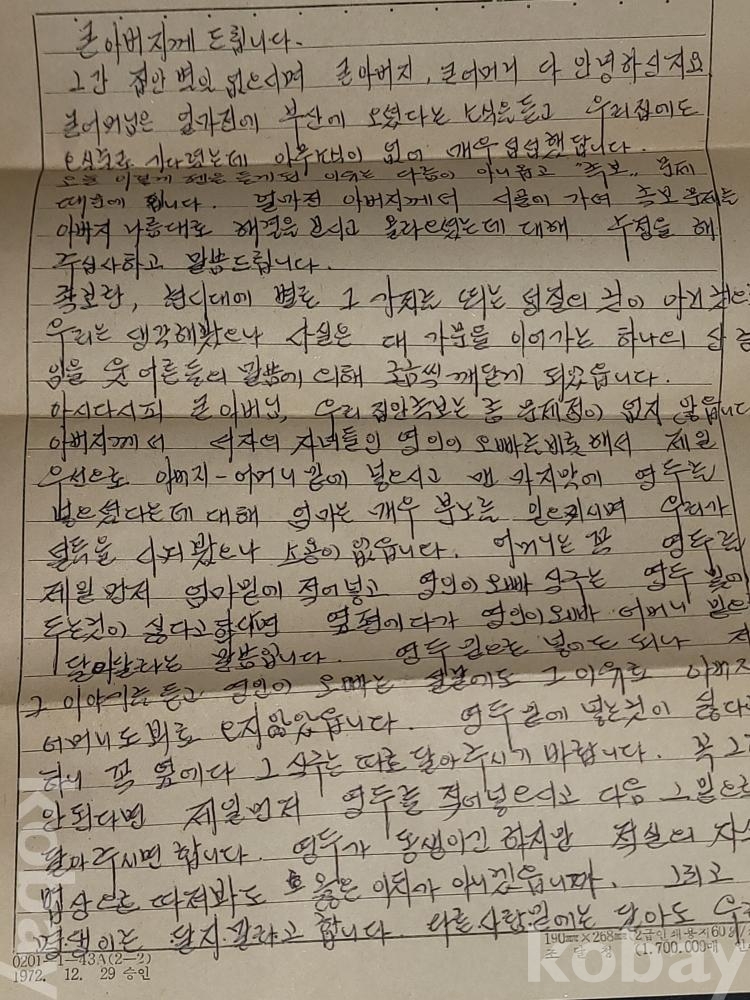 큰아버지께 드립니다.
그간 집안 별일 없으시며 큰아버지, 큰어머니 다 안녕하신지요
큰어머님은 얼마전에 부산에 오셨다는 소식을 듣고 우리집에도
오실줄로 기다렸는데 아무 없어 매우 섭섭했답니다.
오늘 이렇게 펜을 들게된 이유는 다름이 아니옵고 "족보" 문제
때문에 입니다. 얼마전 아버지께서 시골에 가셔 족보문제를
아버지 나름대로 해결을 보시고 올라오셨는데 대해 수정을 해
주십사하고 말씀드립니다.
족보란, 현시대에 별로 그 가치를 띄는 성질의 것이 아닌것으
우리는 생각해봤으나 사실은 대 가문을 이어가는 하나의
임을 웃어른들의 말씀에 의해 조금씩 깨닫게 되었읍니다.
아시다시피 큰아버님, 우리 집안족보는 좀 문제점이 없지 않읍니다
아버지께서 서자의 자녀들인 영인이 오빠를비롯해서 제일
우선으로 아버지-어머니 끝에 넣으시고 맨 마지막에 영두를
넣으셨다는데 대해 엄마는 매우 분노를 일으키시며 우리가
설득을 시켜봤으나 소용이 없읍니다. 어머니는 꼭 영두를
제일 먼저 엄마밑에 적어넣고 영인이오빠 식구는 영두 밑에
두는것이 싫다고 한다면 옆편에다가 영인이오빠 어머니 밑으
달아달라는 말씀입니다. 영두 밑으로 넣어도 되나
그 이야기를 듣고 영인이 오빠는 설날에도 그 이유로 아버지
어머니도 뵈로 오지않았읍니다. 영두 밑에 넣는것이 싫다
하니 꼭 옆에다 그 식구는 따로 달아주시기 바랍니다. 꼭 그
안된다면 제일먼저 영두를 적어넣으시고 다음 그밑으로
달아주시면 합니다. 영두가 동생이긴 하지만 적실의 자
법상으로 따져봐도 옳은 이치가 아니겠읍니까. 그리고
달지 말라고 합니다. 다른사람밑에는 달아도 우
0201-1-43A(2-2)
1972. 12. 29 승인
190㎜×268㎜(2급인쇄용지60g/
조 달 청 (1,700,000매
kobay
kobay